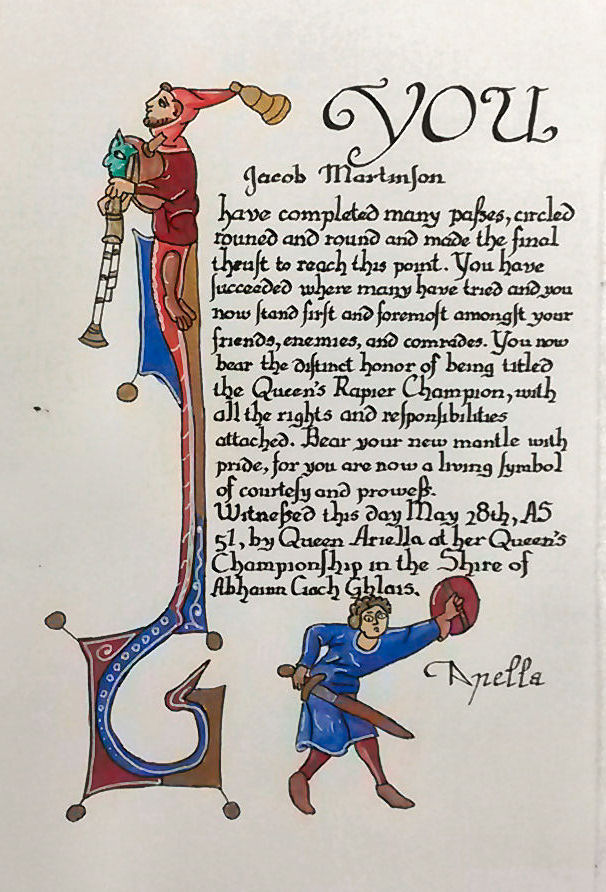 YOU
Jacob Martinſon
have completed many paſses, circled
rouned and round and made the final
thrust to reach this point. You have
ſucceeded where many have tried and you
now ſtand firſt and foremoſt amongſt your
friends, enemies, and comrades. You now
bear the diſtinct honor of being titled
the Queen's Rapier Champion, with
all the rights and reſponſibilities
attached. Bear your new mantle with
pride, for you are now a living ſymbol
of courteſy and proweſs.
Witneſsed this day May 28th, AS
51, by Queen Ariella at her Queen's
Championſhip in the Shire of
Abhainn Ciach Ghlais.
Ariella